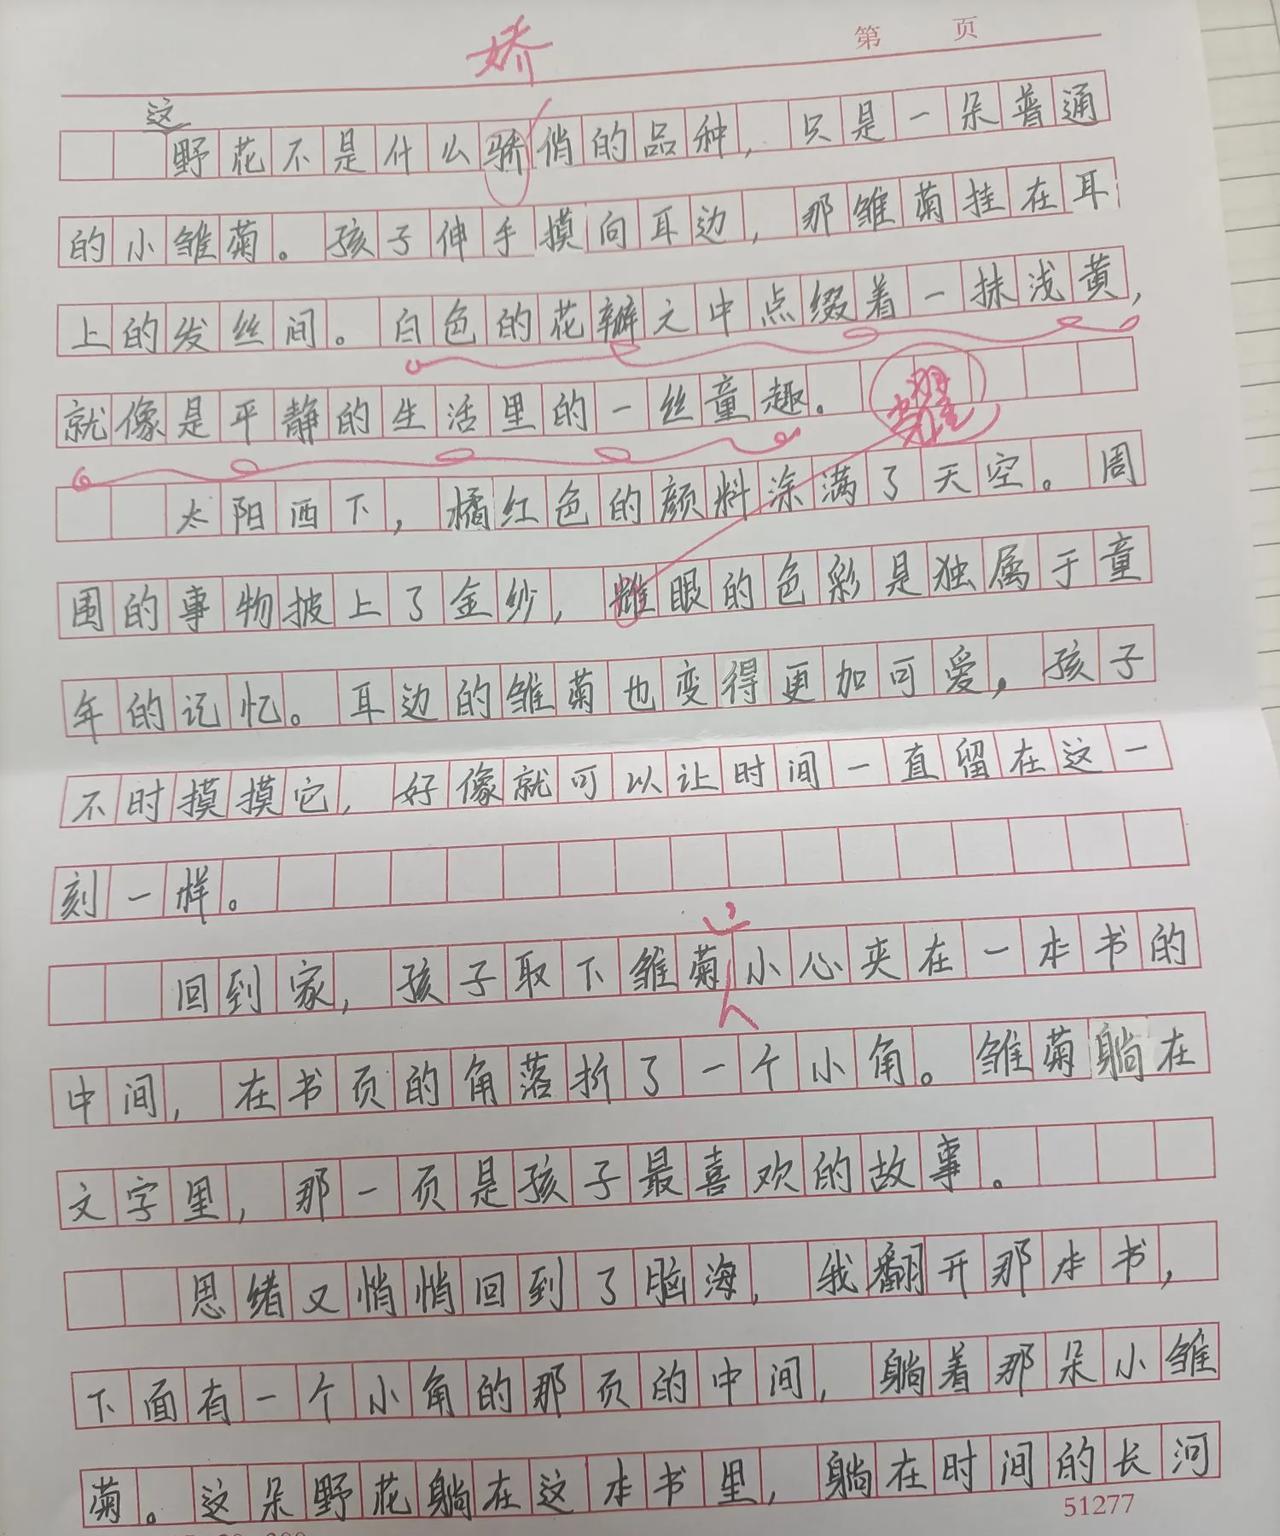 娇
第 页
这
野花不是什么骄俏的品种，只是一朵普通
的小雏菊。孩子伸手摸向耳边，那雏菊挂在耳
上的发丝间。白色的花瓣之中点缀着一抹浅黄，
就像是平静的生活里的一丝童趣。
太阳西下，橘红色的颜料涂满了天空。周
围的事物披上了金纱，眼的色彩是独属于童
年的记忆。耳边的雏菊也变得更加可爱，孩子
不时摸摸它，好像就可以让时间一直留在这一
刻一样。
回到家，孩子取下雏菊小心夹在一本书的
中间，在书页的角落折了一个小角。雏菊躺在
文字里，那一页是孩子最喜欢的故事。
思绪又悄悄回到了脑海，我翻开那本书，
下面有一个小角的那页的中间，躺着那朵小雏
菊。这朵野花躺在这本书里，躺在时间的长河
51277